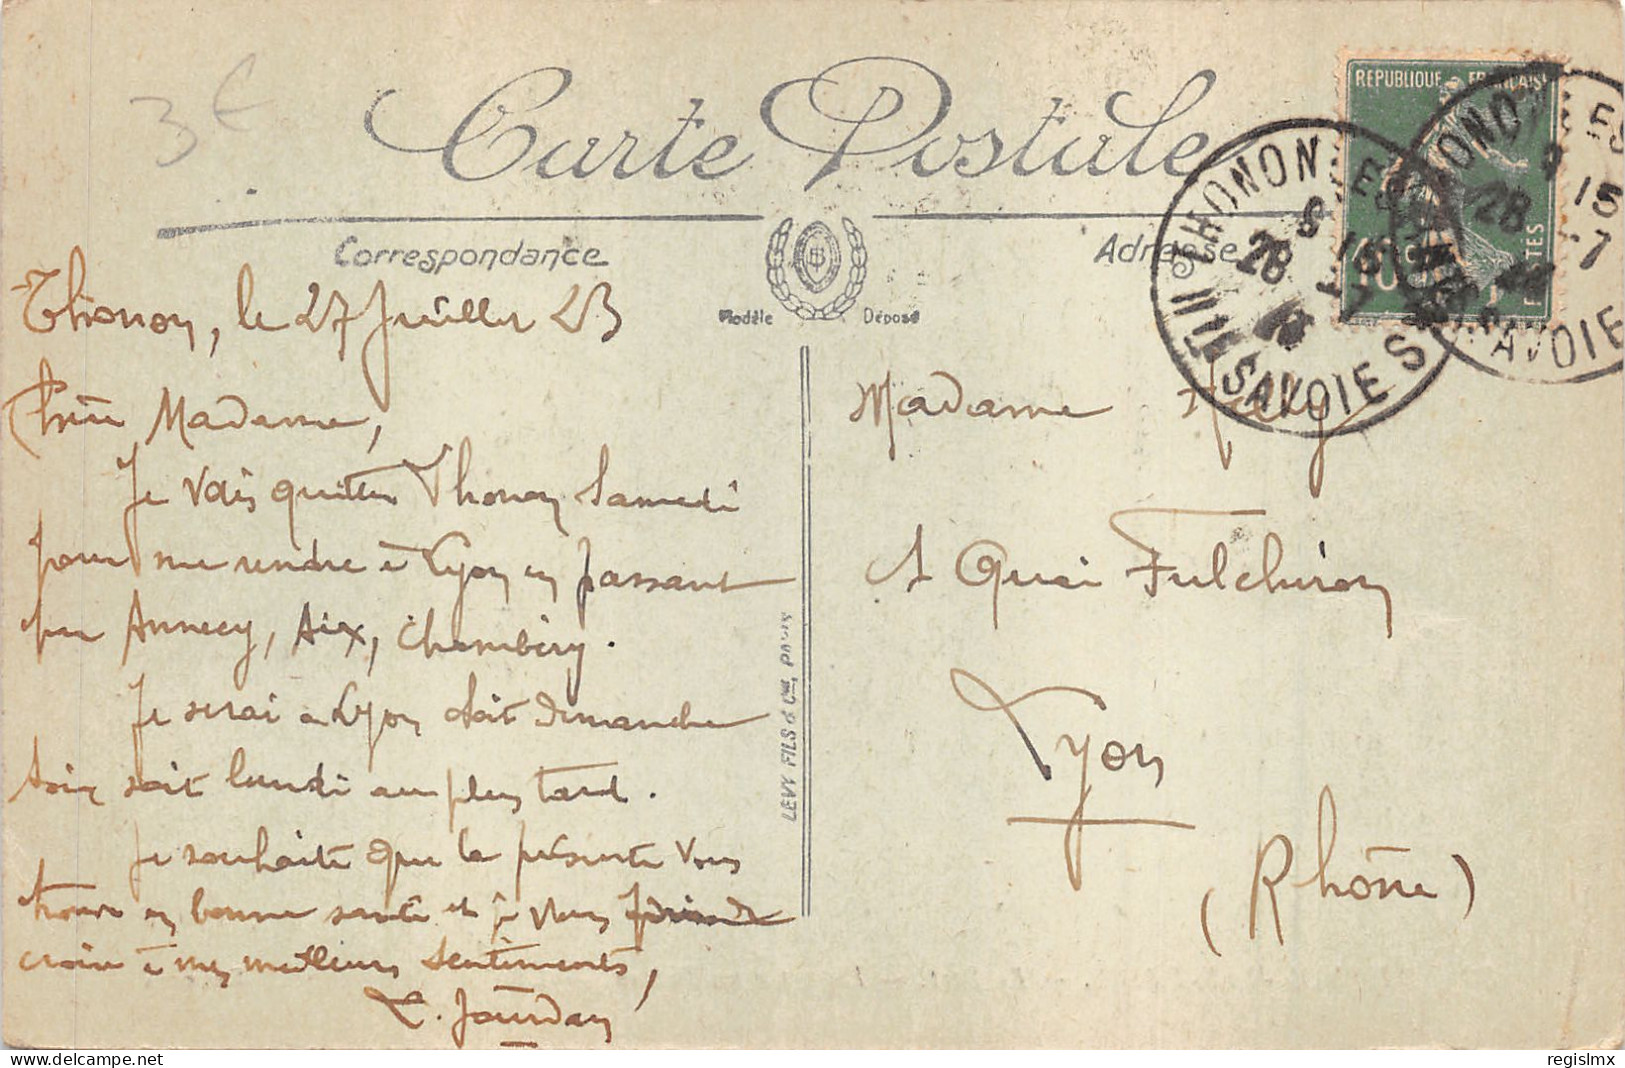 3€
Carte Postale
Correspondance
Adresse
Modèle Déposé
REPUBLIQUE FRANÇAISE
10c
POSTES
THONON-LES
28
HTE SAVOIE
THONON
ES
28
15
-7
SAVOIE
Thonon, le 27 Juillet 23
Chère Madame,
Je vais quitter Thonon Samedi
pour me rendre à Lyon en passant
par Annecy, Aix, Chambéry.
Je serai à Lyon soit dimanche
soir soit lundi au plus tard.
Je souhaite que la présente vous
trouve en bonne santé et je vous prie de
croire à mes meilleurs sentiments,
L. Jourdan
LEVY FILS & Cie, PARIS
Madame
1 Quai Fulchiron
Lyon
(Rhône)
delcampe.net
regislmx